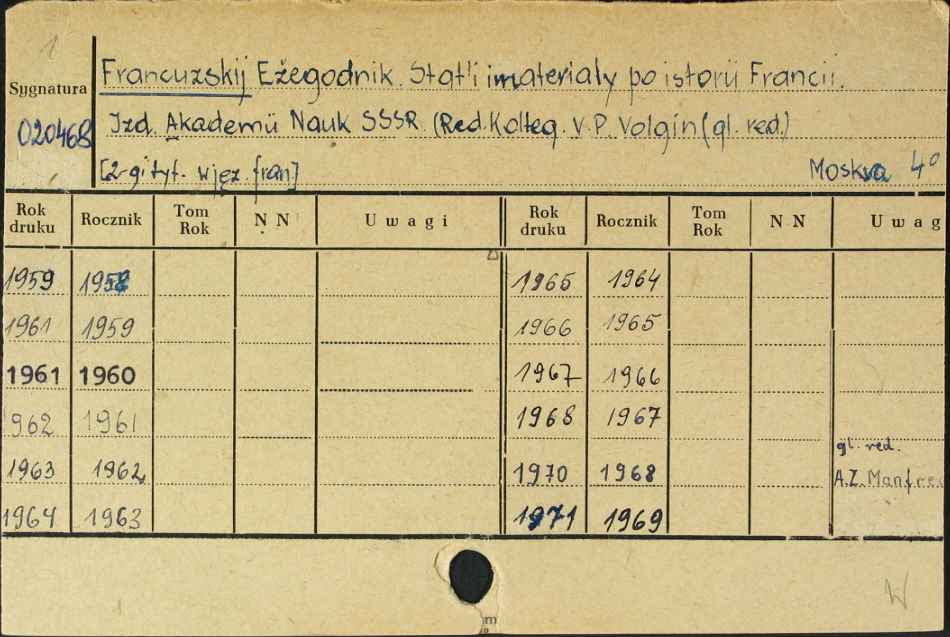 1
Sygnatura
020468
Francuzskij Ežegodnik. Stat'i i materialy po istorii Francii.
Izd. Akademii Nauk SSSR (Red. Kolleg. V. P. Volgin (gl. red.)
[2-gi tyt. w jęz. fran]
Moskva 4°
Rok druku Rocznik Tom Rok N N Uwagi Rok druku Rocznik Tom Rok N N Uwag
1959 1958 1965 1964
1961 1959 1966 1965
1961 1960 1967 1966
962 1961 1968 1967
gl. red.
1963 1962 1970 1968 A.Z. Manfred
1964 1963 1971 1969
W
m